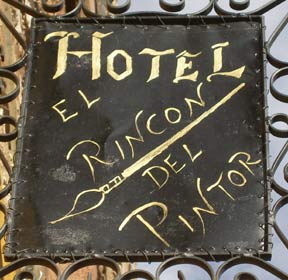 HOTEL
EL
RINCON
DEL
PINTOR